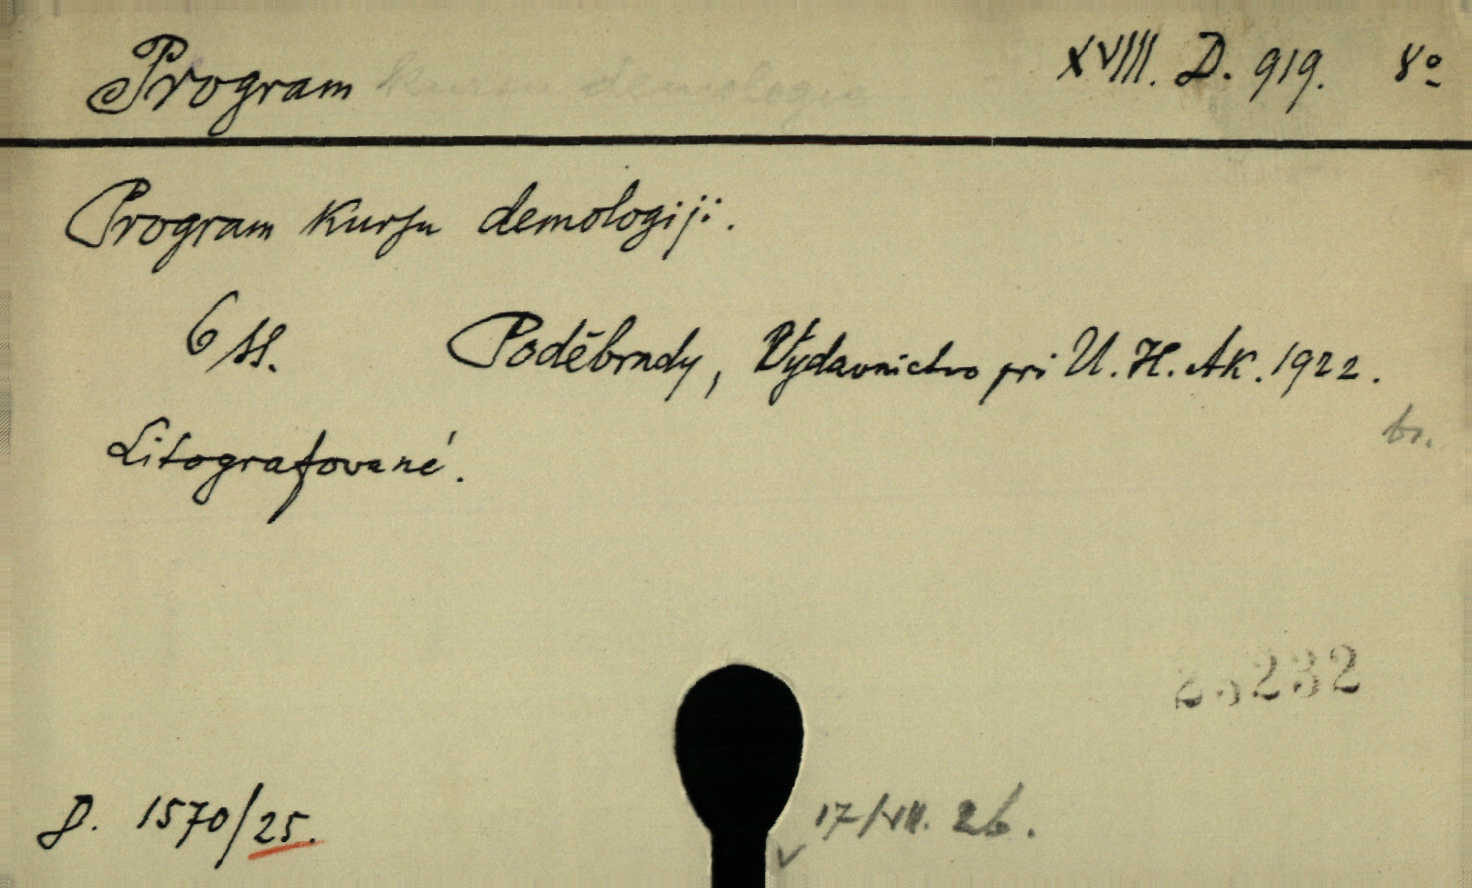 Program kursu demologie XVIII. D. 919. 8º
Program kursu demologiji.
6 ss. Poděbrady, Vydavnictvo pri U. H. Ak. 1922.
br.
Litografované.
232
D. 1570/25.
17/VII. 26.